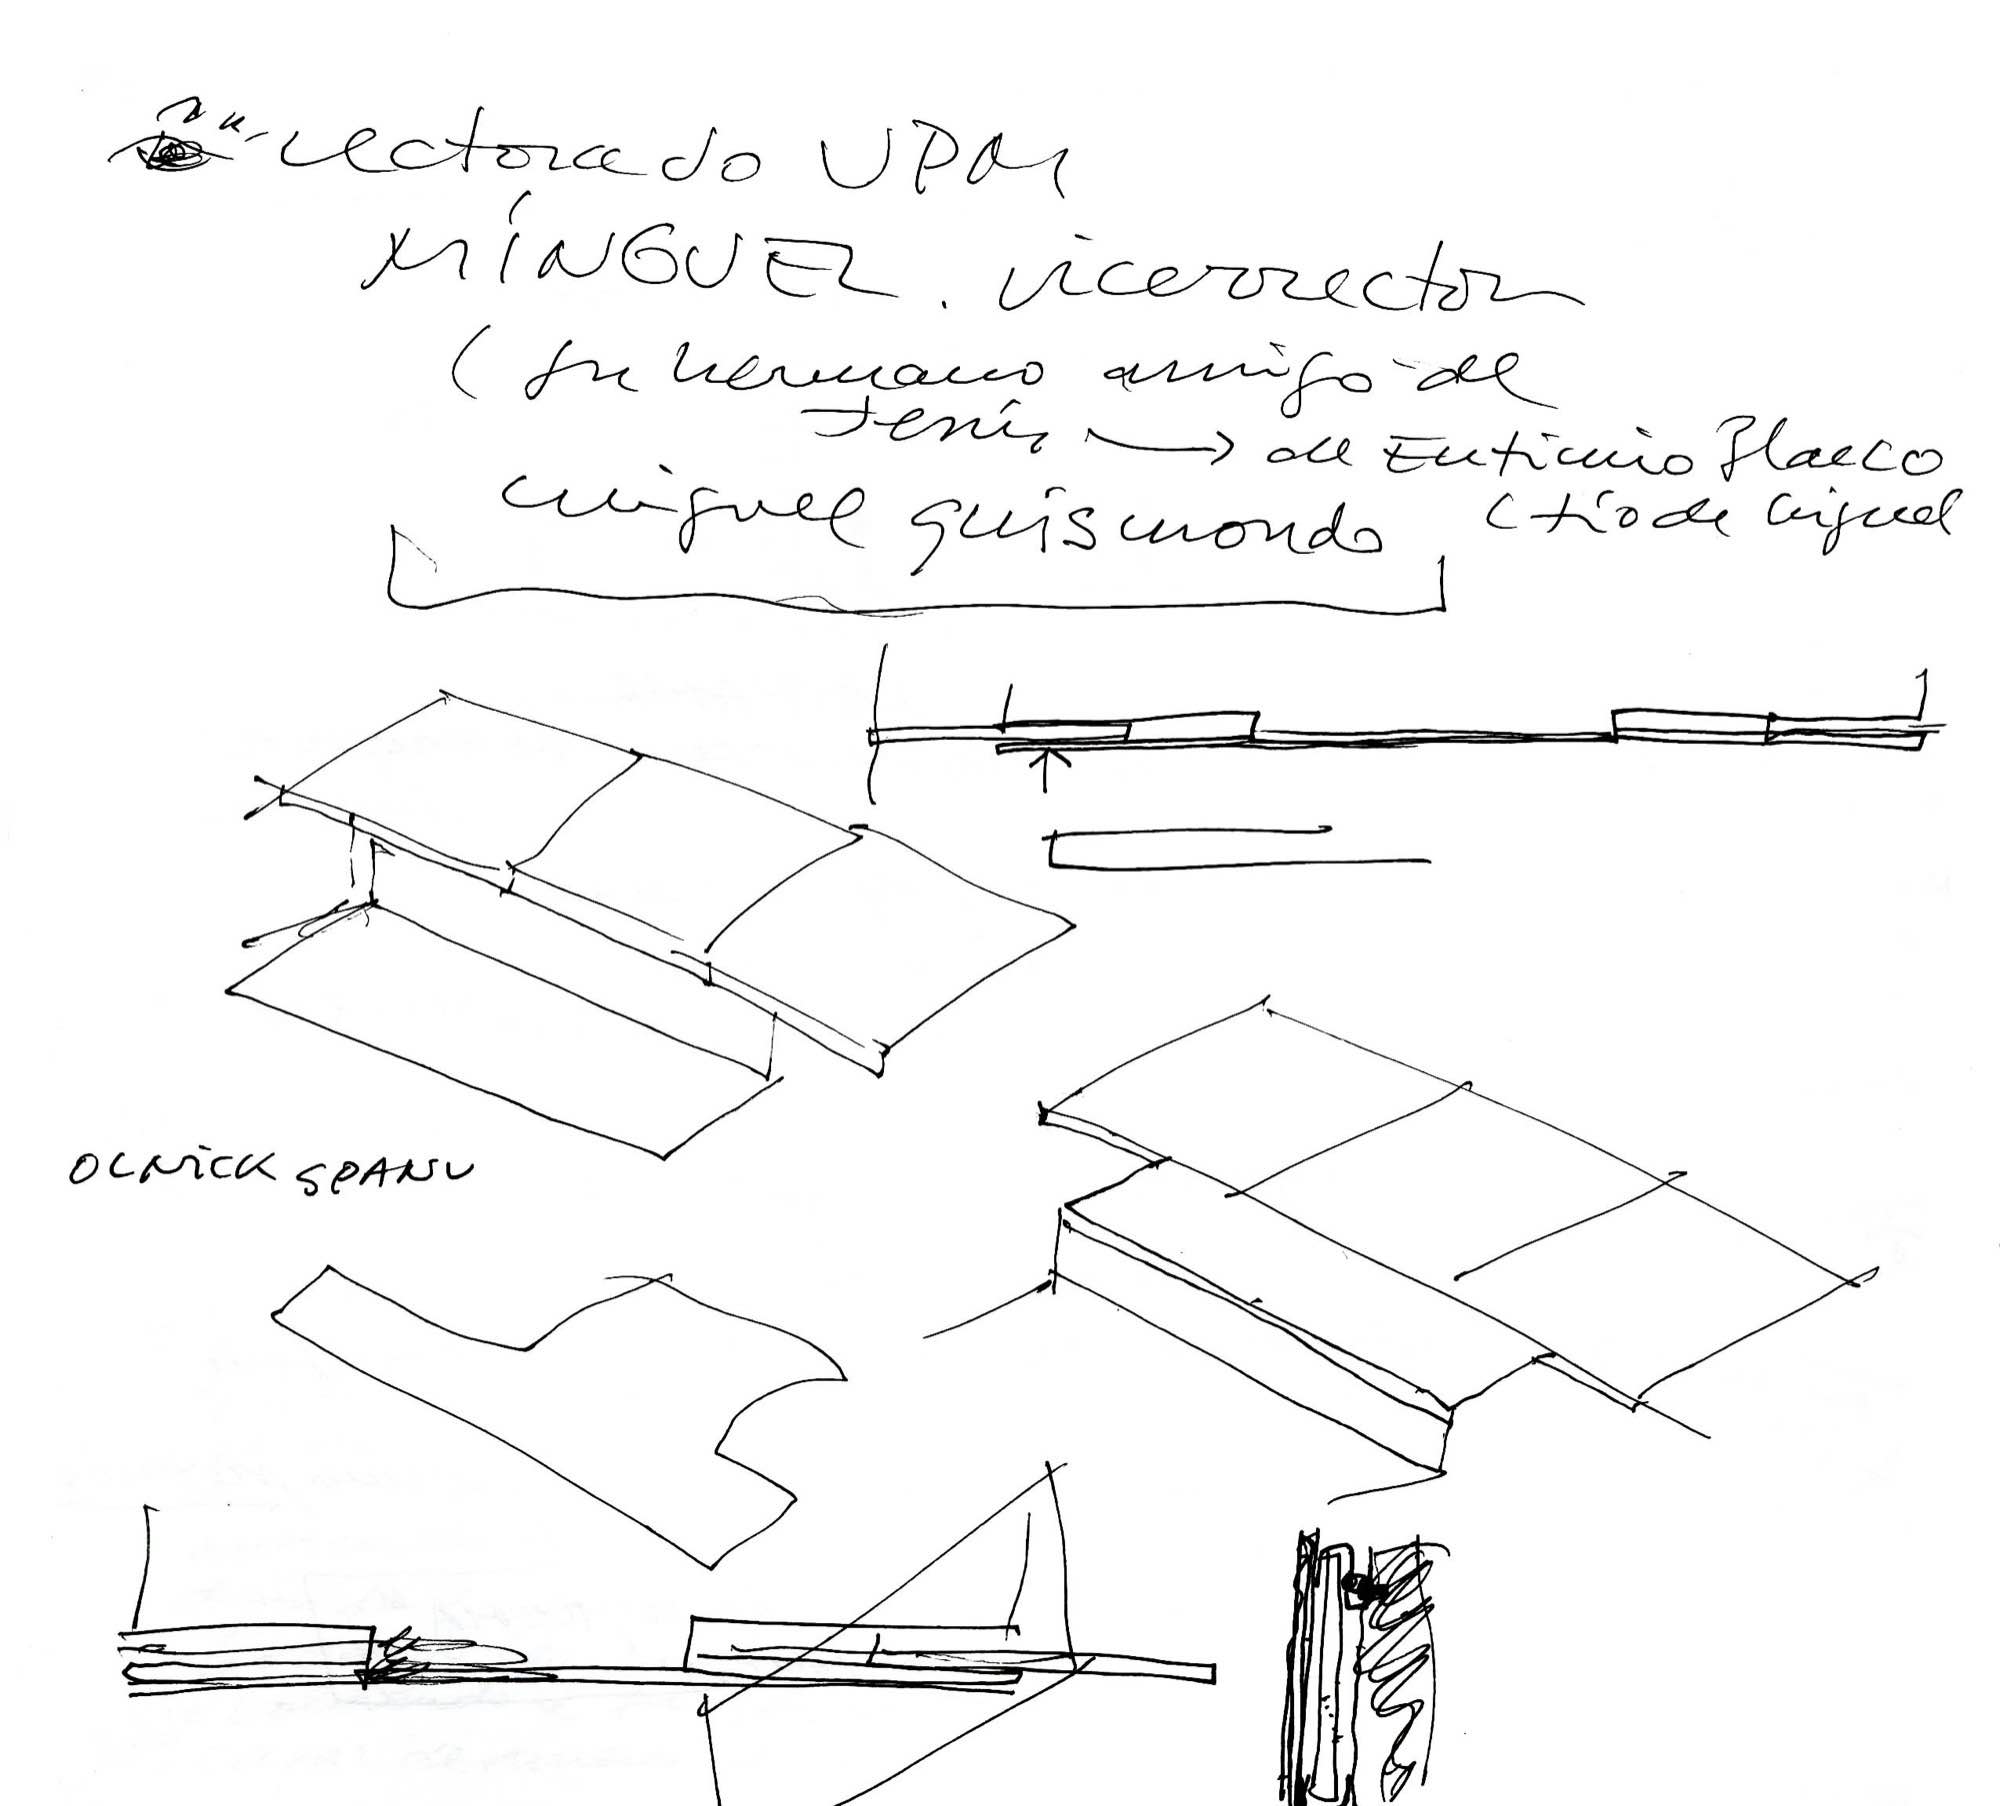 rectorado UPM
MÍNGUEZ. vicerrector
( su hermano amigo de
Jesús → de Eutimio Blasco
miguel quismondo (tío de miguel
OLNICK SPANU